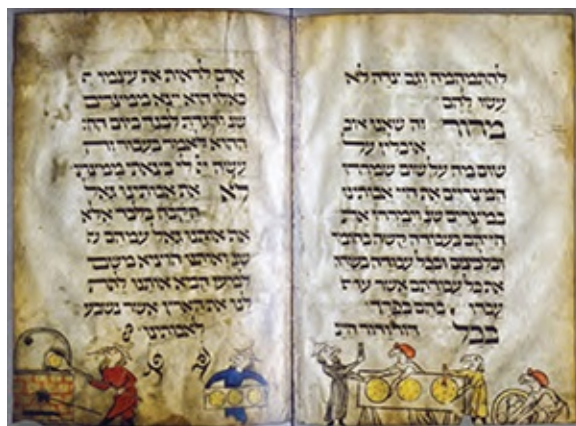 להתמהמה וגם צדה לא
עשו להם
מרור זה שאנו אוכ
אוכלין על
שום מה על שום שמררו
המצריים את חיי אבותינו
במצרים שנ וימררו את
חייהם בעבודה קשה בחמר
ובלבנים ובכל עבודה בשדה
את כל עבודתם אשר
עבדו בהם בפרך
בכל דור ודור
אדם לראות את עצמו
כאלו הוא יצא ממצרים
שנ והגדת לבנך ביום הה
ההוא לאמר בעבור זה
עשה לי בצאתי ממצרי
לא את אבותינו גאל
הקבה בלבד אלא
אותנו גאל עמהם
שנ ואותנו הוציא משם
למען הביא אותנו לתת
לנו את הארץ אשר נשבע
לאבותינו